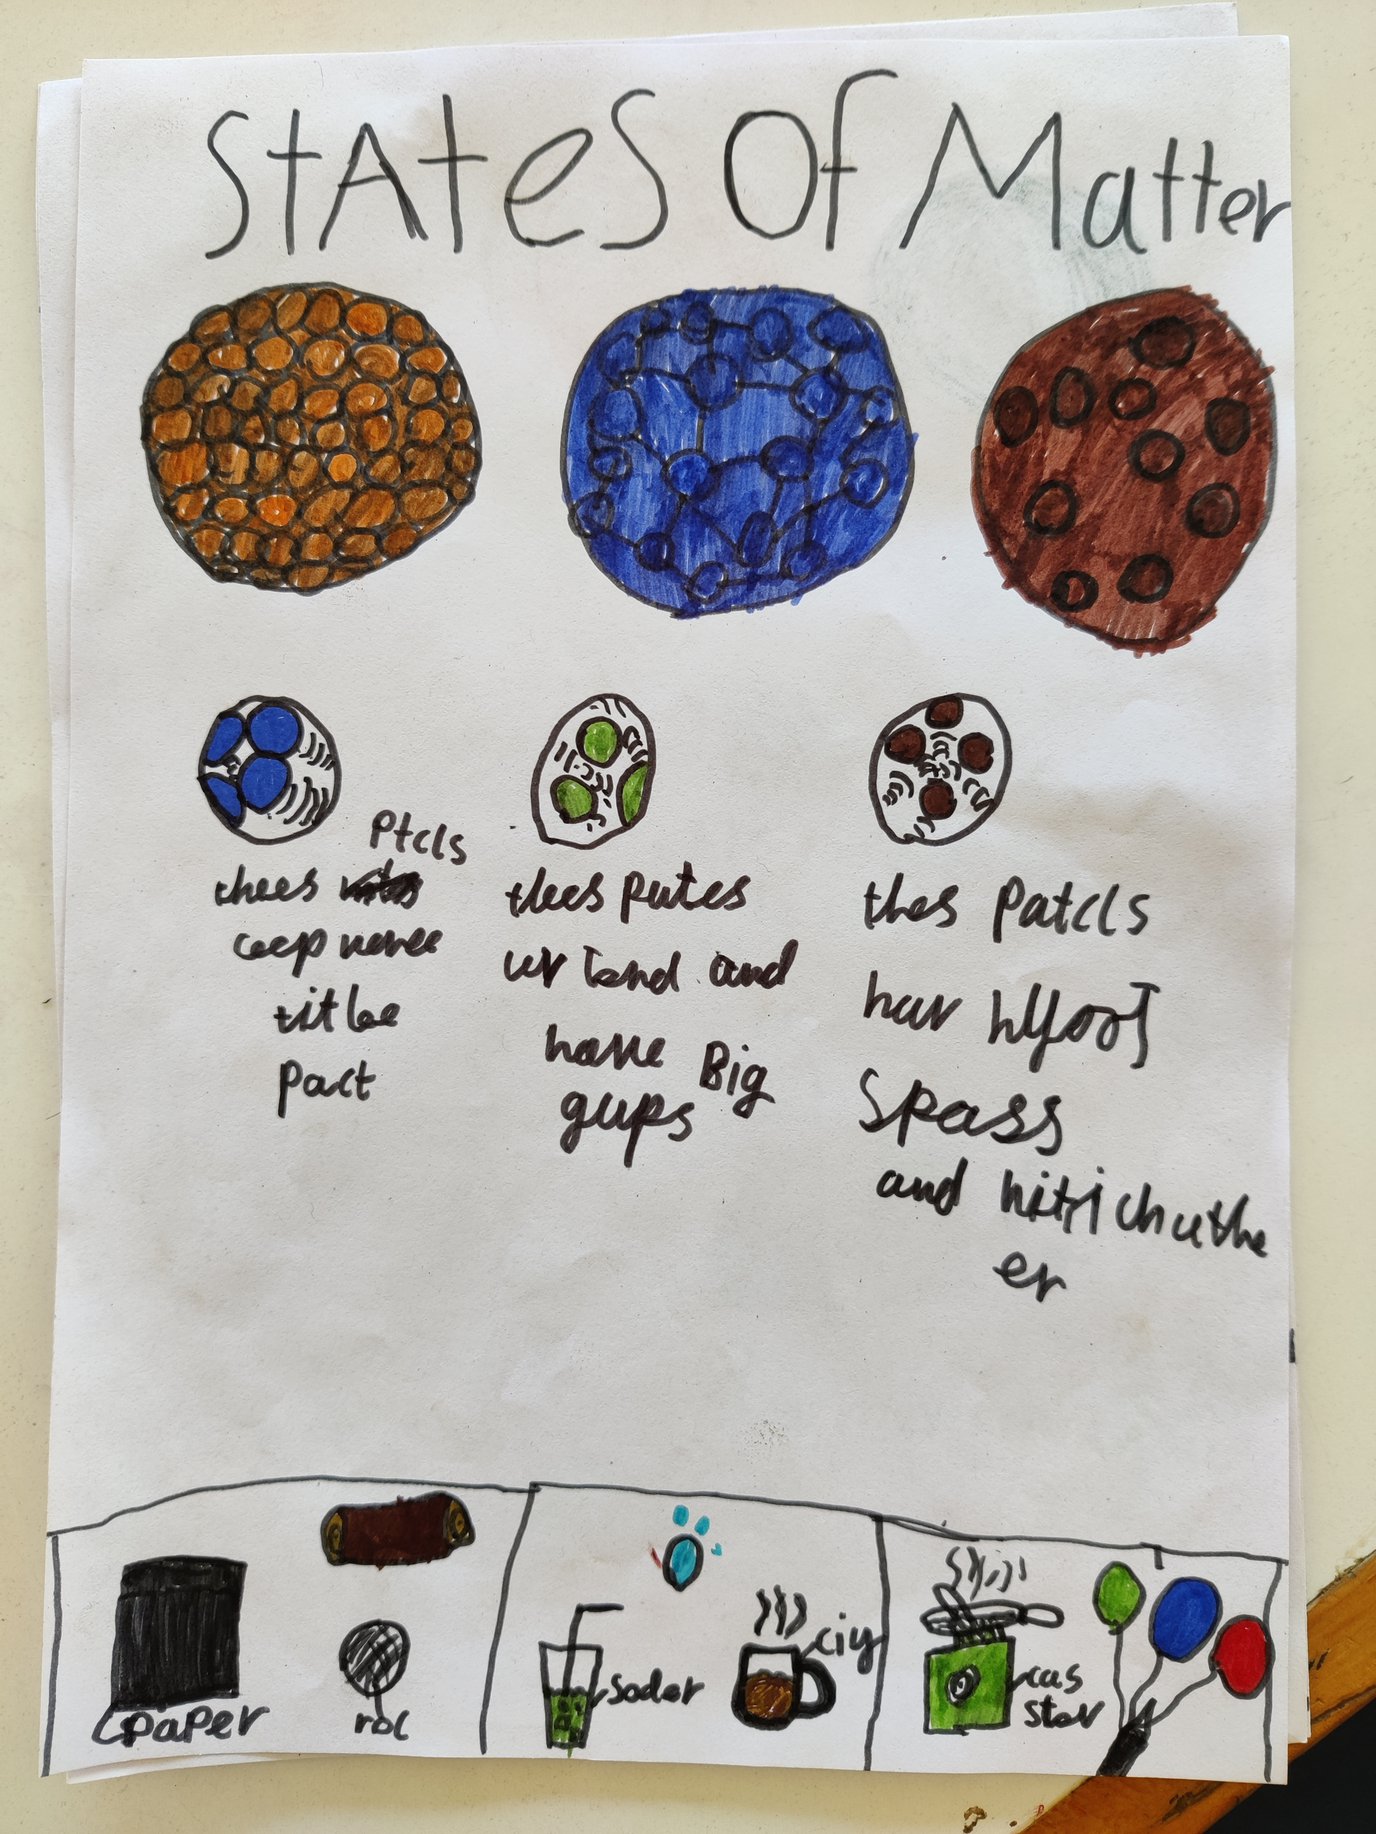 StAteS Of Matter
Ptcls
thees
ceep veree
titbe
Pact
thees putes
ur tond and
have Big
gups
thes Patcls
hav hlfoof
Spass
and hitichuthe
er
paper
roc
Soder
ciy
cas
stov